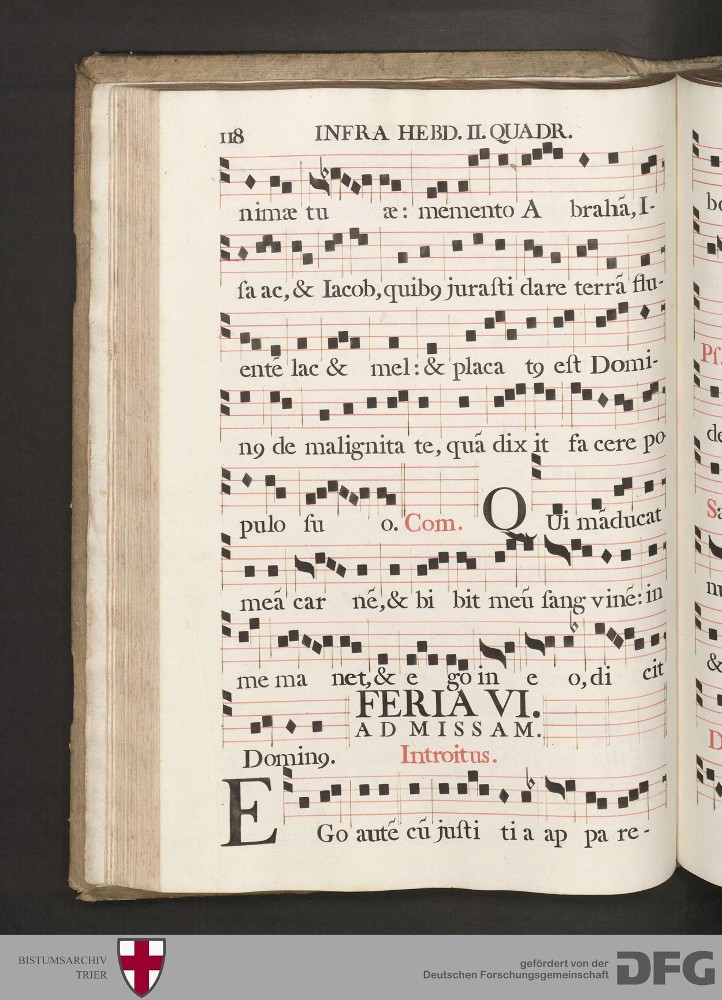 118 INFRA HEBD. II. QUADR.
nimæ tu æ: memento A brahã, I-
ſa ac, & Iacob, quibꝯ juraſti dare terrã flu-
entẽ lac & mel: & placa tꝯ eſt Domi-
nꝯ de malignita te, quã dix it fa cere po
pulo ſu o. Com. QUi mãducat
meã car nẽ, & bi bit meũ ſang vinẽ: in
me ma net, & e go in e o, di cit
Dominꝯ.
FERIA VI.
AD MISSAM.
Introitus.
EGo autẽ cũ juſti ti a ap pa re-
bo
Pſ.
de
Sa
nu
&
D
BISTUMSARCHIV
TRIER
gefördert von der
Deutschen Forschungsgemeinschaft
DFG